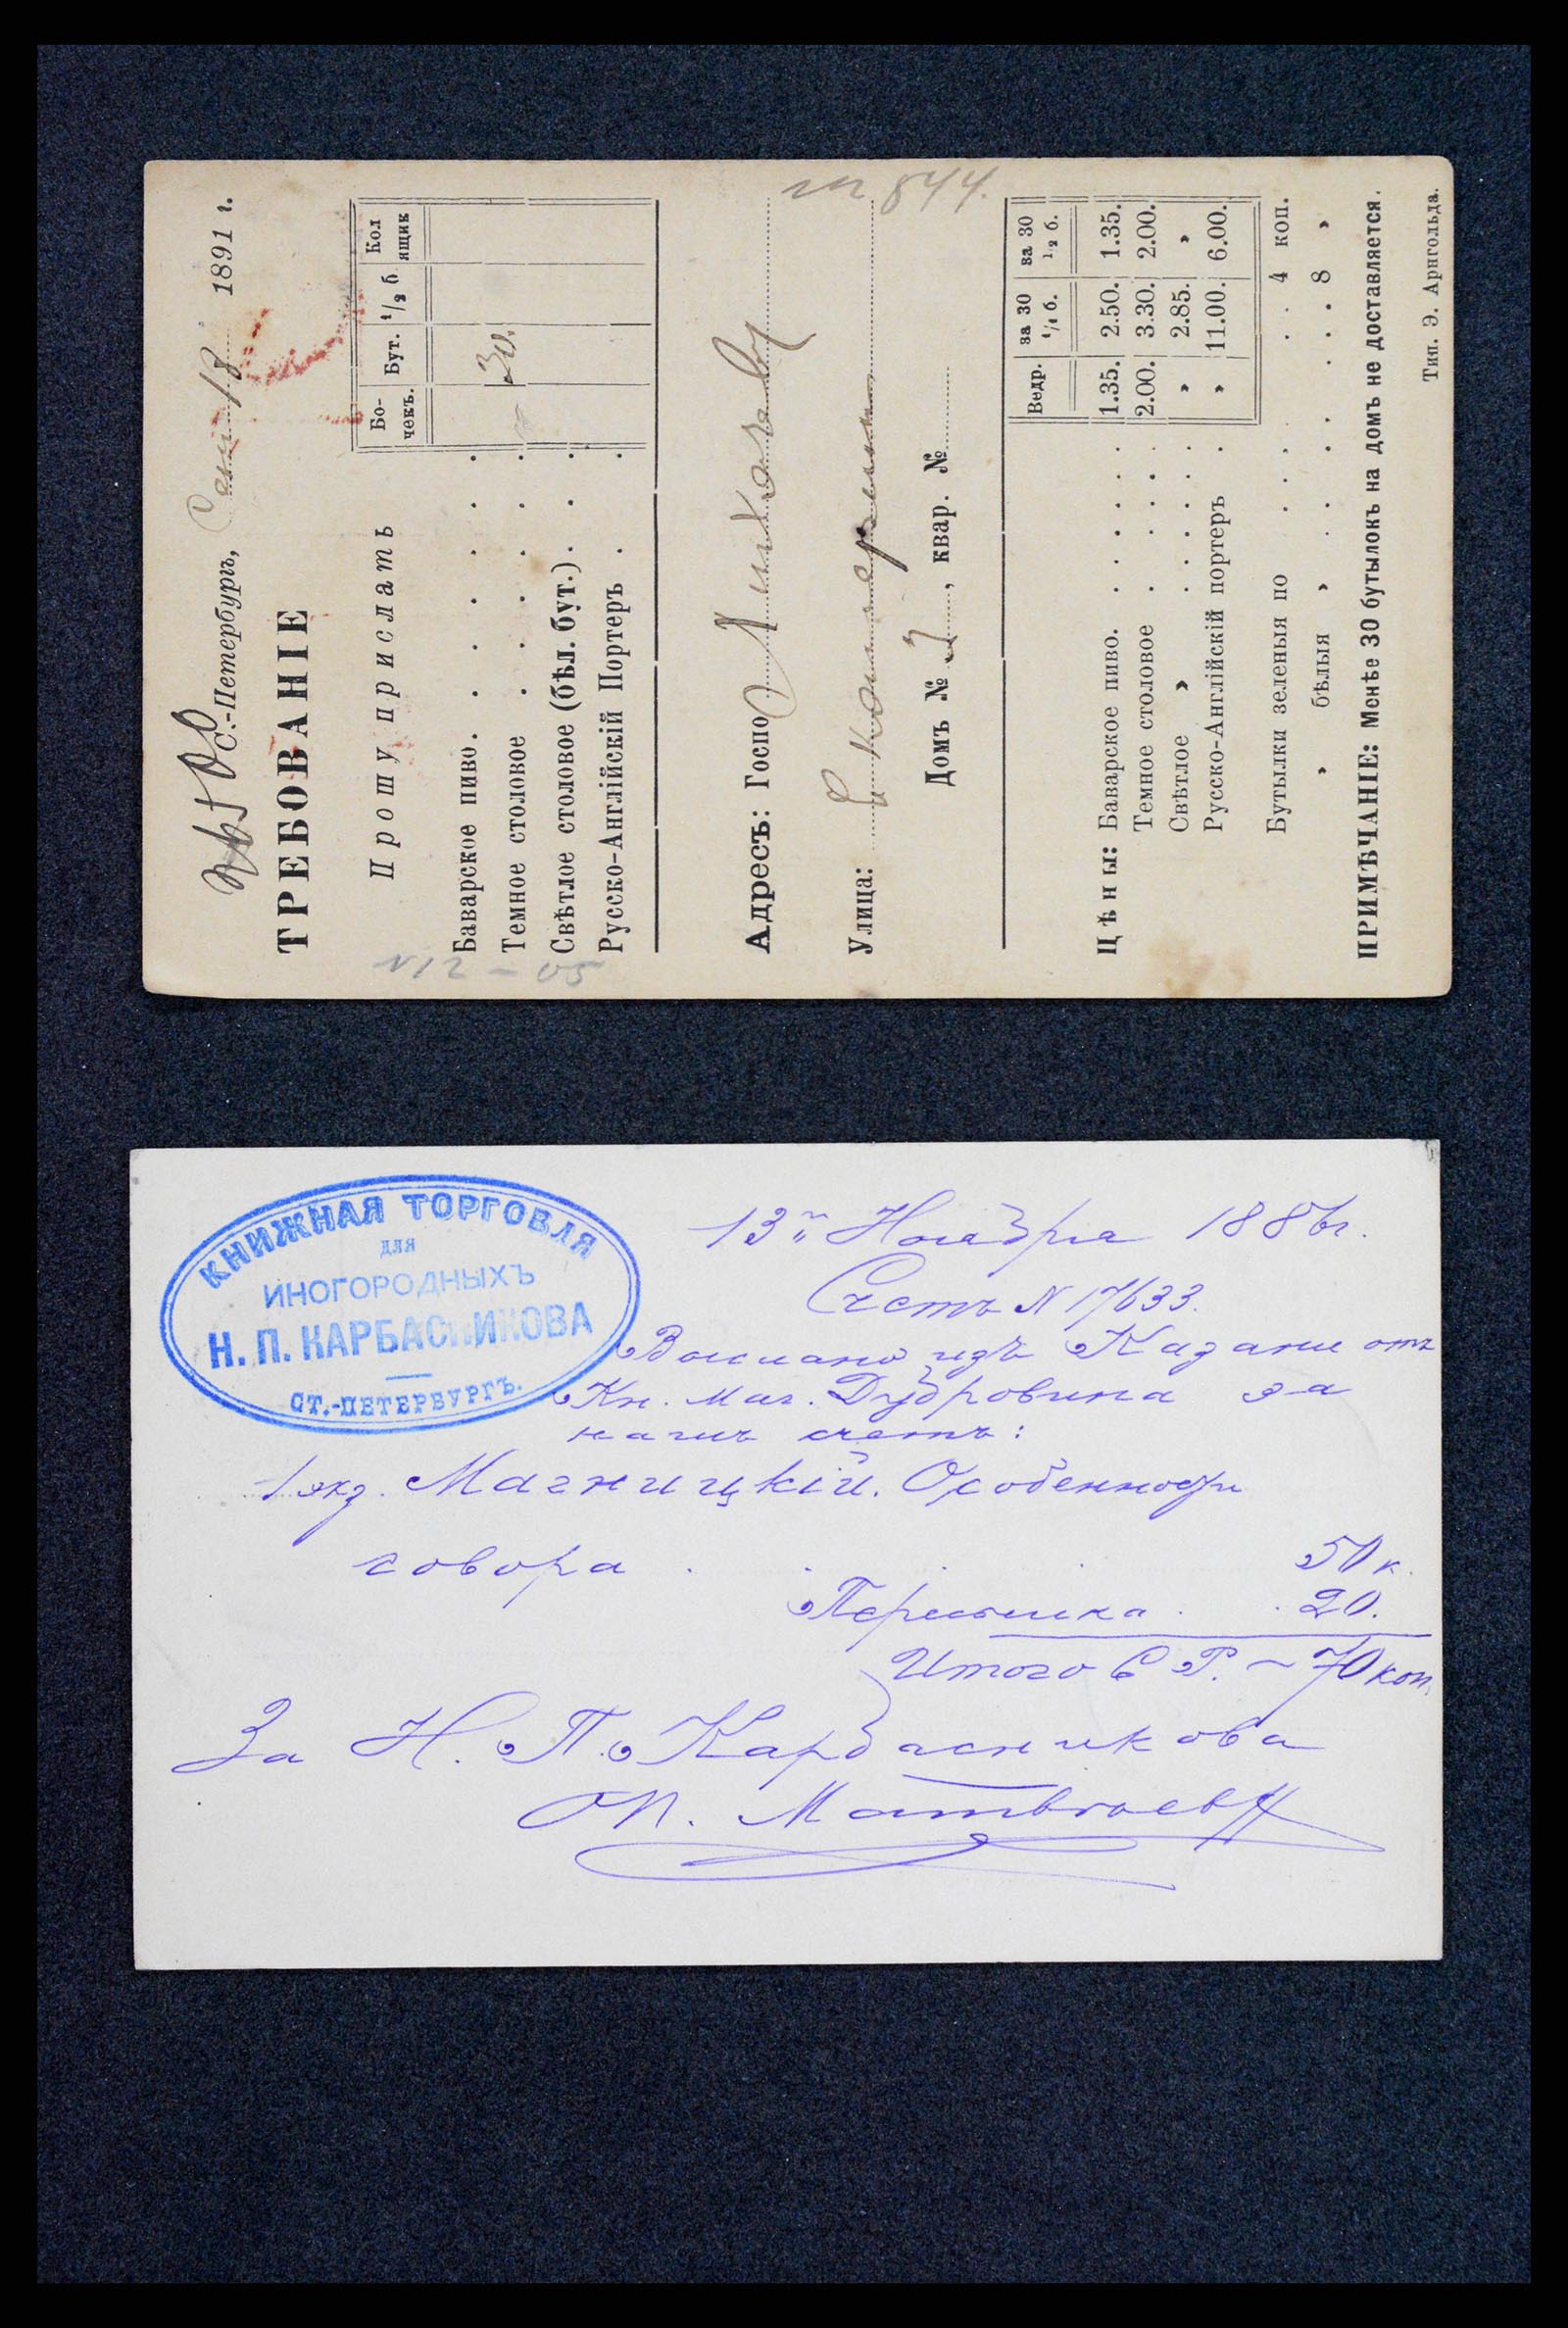 С.-Петербургъ, Сен 18 1891 г.
ТРЕБОВАНІЕ
Прошу прислать
Бо-чекъ. Бут. 1/2 б Кол ящик
Баварское пиво. . . . . . .
Темное столовое . . . . . 30.
Свѣтлое столовое (бѣл. бут.) . . .
Русско-Англійскій Портеръ . .
N12 - 05
Адресъ: Госпо
m 844.
Улица:
Домъ № 7, квар. №
Ведр. за 30 1/1 б. за 30 1/2 б.
Цѣны: Баварское пиво. . . . . . 1.35. 2.50. 1.35.
Темное столовое . . . . 2.00. 3.30. 2.00.
Свѣтлое » . . . . . » 2.85. »
Русско-Англійскій портеръ . » 11.00. 6.00.
Бутылки зеленыя по . . . . . 4 коп.
» бѣлыя » . . . . . . . 8 »
ПРИМѢЧАНІЕ: Менѣе 30 бутылокъ на домъ не доставляется.
Тип. Э. Арнгольда.
КНИЖНАЯ ТОРГОВЛЯ
для
ИНОГОРОДНЫХЪ
Н. П. КАРБАСНИКОВА
СТ.-ПЕТЕРБУРГЪ.
13го Ноября 1886г.
Счетъ N 17633.
Выслано изъ Казани отъ
Кн. Маг. Дубровина за
нашъ счетъ:
1 экз. Магницкій. Особенности
говора . . . 50 к.
Пересылка . . 20.
Итого С Р. ~ 70 коп.
За Н. П. Карбасникова
П. Матвѣевъ